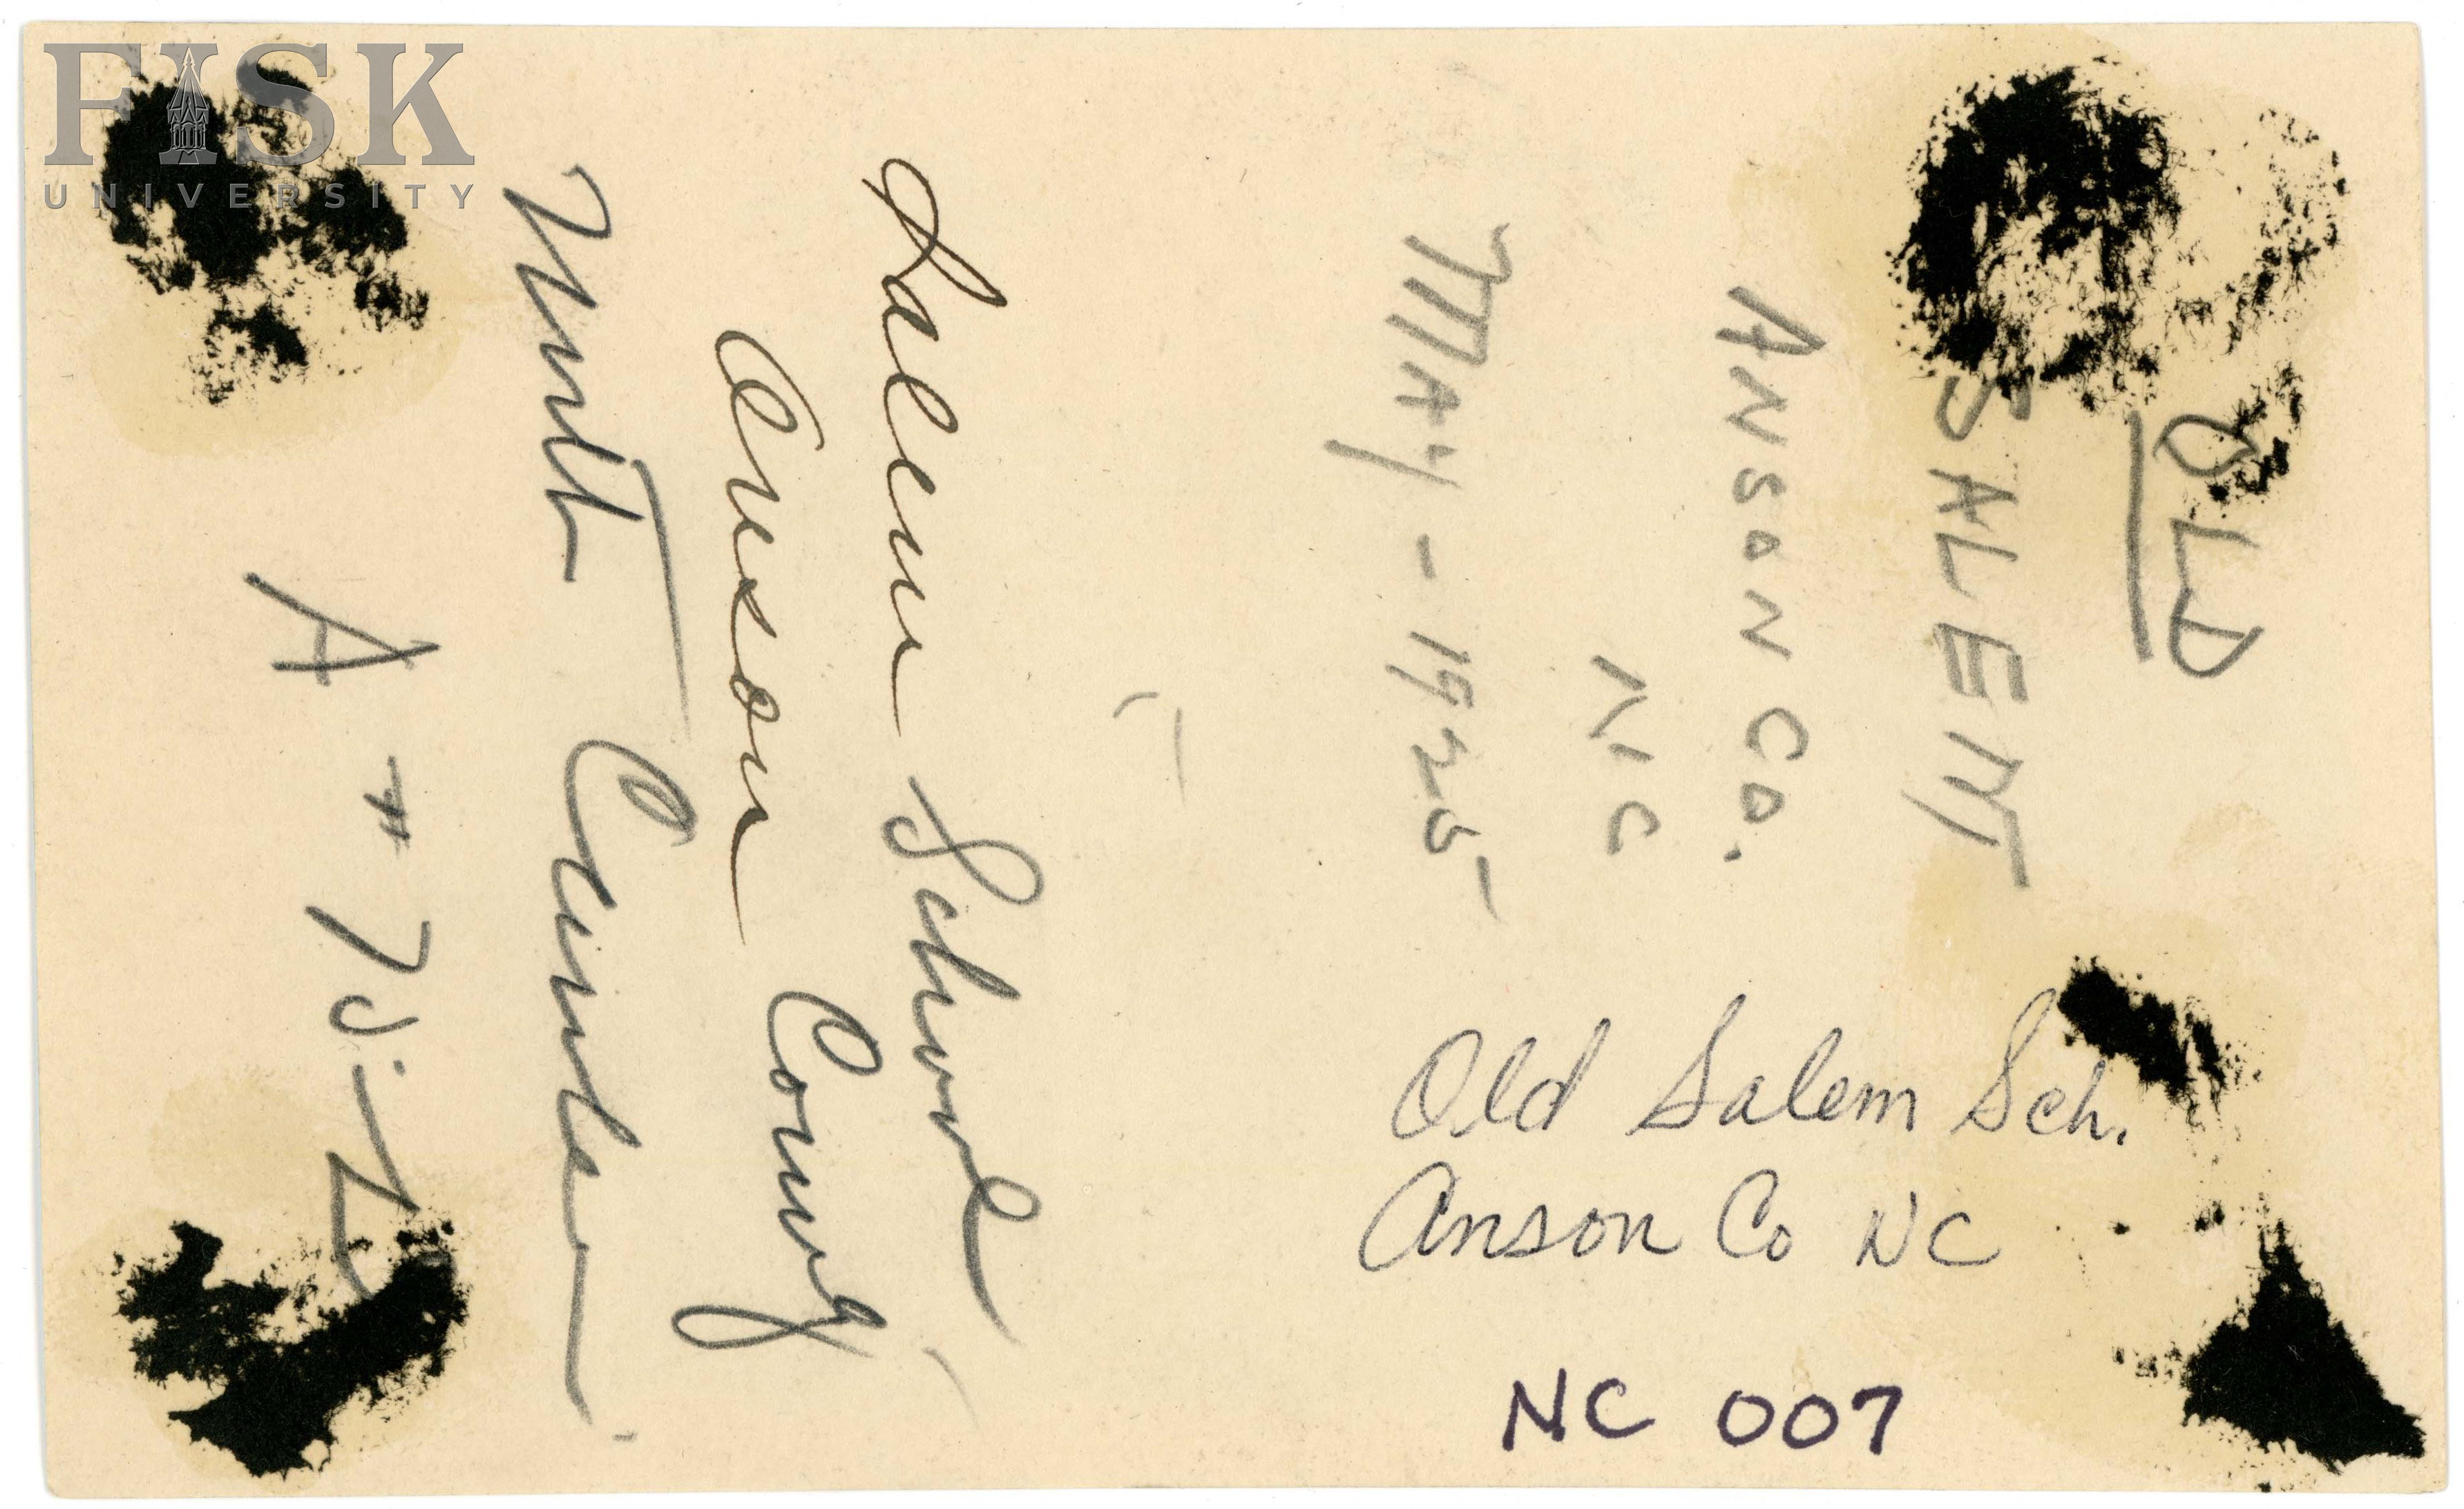 FISK
UNIVERSITY
OLD
SALEM
ANSON CO.
N.C
MAY - 1925
Salem School
Anson County
North Carolina
A
Old Salem Sch.
Anson Co NC
NC 007